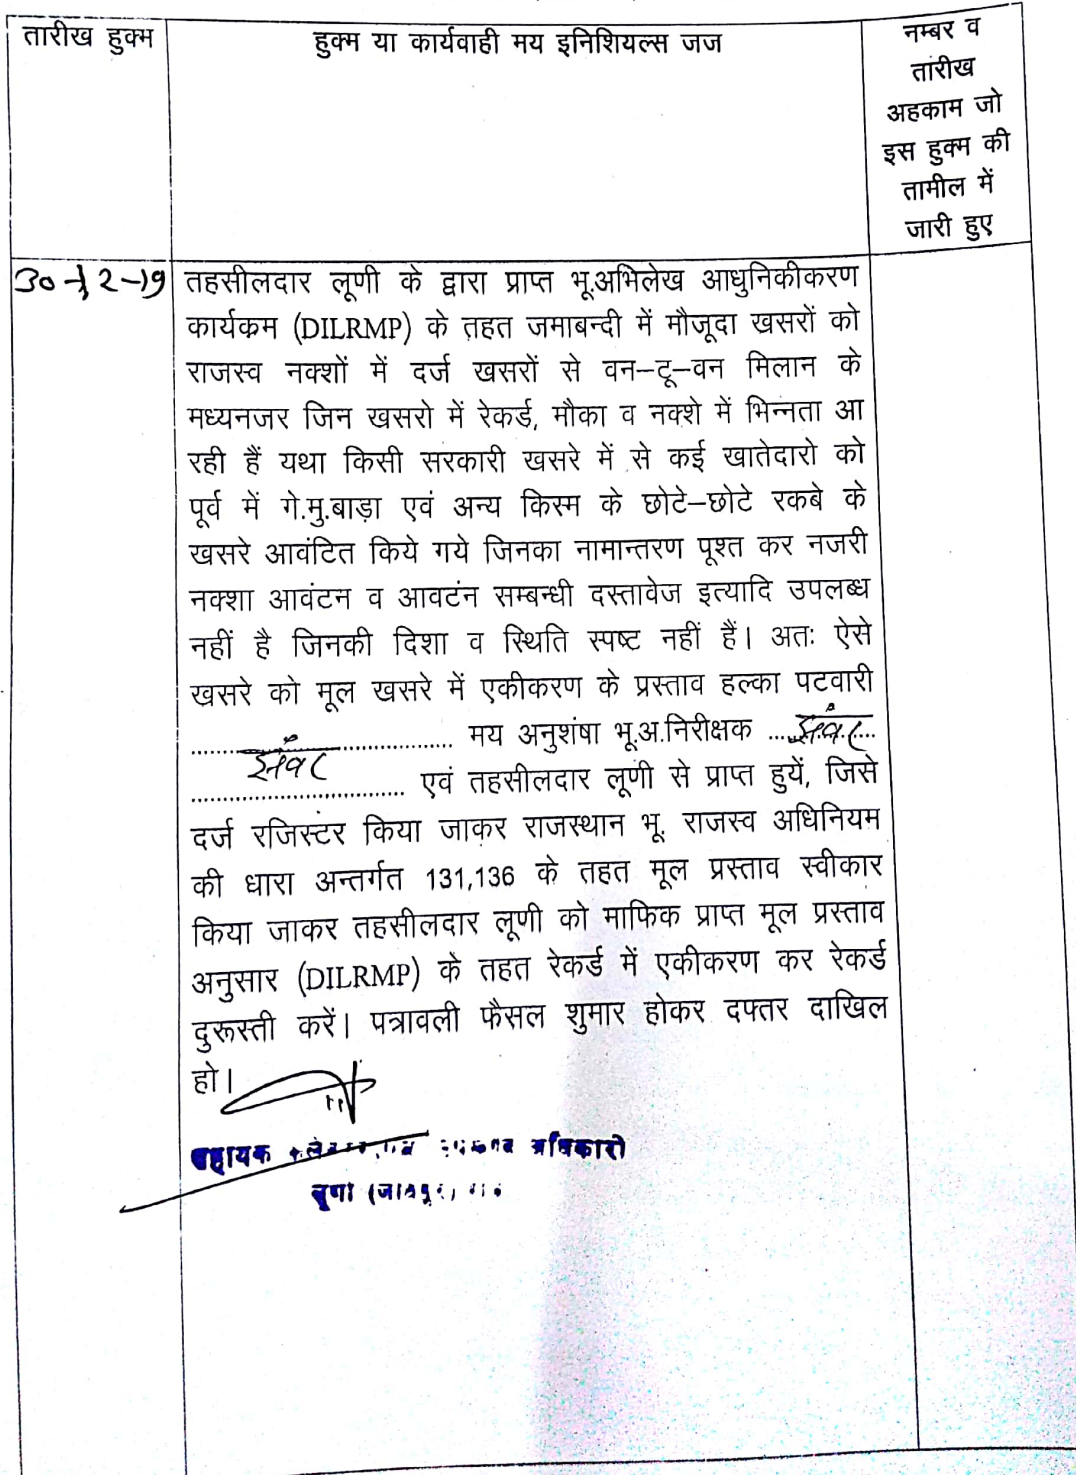 तारीख हुक्म
हुक्म या कार्यवाही मय इनिशियल्स जज
नम्बर व
तारीख
अहकाम जो
इस हुक्म की
तामील में
जारी हुए
30-12-19
तहसीलदार लूणी के द्वारा प्राप्त भू.अभिलेख आधुनिकीकरण
कार्यक्रम (DILRMP) के तहत जमाबन्दी में मौजूदा खसरों को
राजस्व नक्शों में दर्ज खसरों से वन–टू–वन मिलान के
मध्यनजर जिन खसरो में रेकर्ड, मौका व नक्शे में भिन्नता आ
रही हैं यथा किसी सरकारी खसरे में से कई खातेदारो को
पूर्व में गे.मु.बाड़ा एवं अन्य किस्म के छोटे–छोटे रकबे के
खसरे आवंटित किये गये जिनका नामान्तरण पूश्त कर नजरी
नक्शा आवंटन व आवटंन सम्बन्धी दस्तावेज इत्यादि उपलब्ध
नहीं है जिनकी दिशा व स्थिति स्पष्ट नहीं हैं। अतः ऐसे
खसरे को मूल खसरे में एकीकरण के प्रस्ताव हल्का पटवारी
.................................... मय अनुशंषा भू.अ.निरीक्षक ..... झंवर
झंवर
.................................. एवं तहसीलदार लूणी से प्राप्त हुयें, जिसे
दर्ज रजिस्टर किया जाकर राजस्थान भू. राजस्व अधिनियम
की धारा अन्तर्गत 131,136 के तहत मूल प्रस्ताव स्वीकार
किया जाकर तहसीलदार लूणी को माफिक प्राप्त मूल प्रस्ताव
अनुसार (DILRMP) के तहत रेकर्ड में एकीकरण कर रेकर्ड
दुरूस्ती करें। पत्रावली फैसल शुमार होकर दफ्तर दाखिल
हो।
सहायक अधिकारी
लूणी